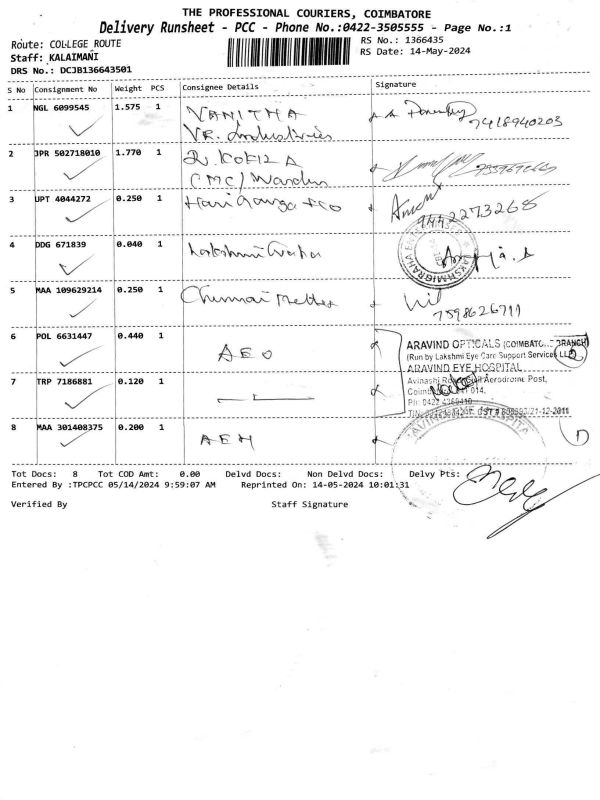 THE PROFESSIONAL COURIERS, COIMBATORE
Delivery Runsheet - PCC - Phone No.:0422-3505555 - Page No.:1
Route: COLLEGE ROUTE
RS No.: 1366435
Staff: KALAIMANI
RS Date: 14-May-2024
DRS No.: DCJB136643501
S No Consignment No Weight PCS Consignee Details Signature
1 NGL 6099545 1.575 1 VANITHA
VR. Industries
7418940203
2 JPR 502718010 1.770 1
CMC/
3 UPT 4044272 0.250 1 Hari Ganga
9442273268
4 DDG 671839 0.040 1 Lakshmi
5 MAA 109629214 0.250 1 Chennai
7598626711
6 POL 6631447 0.440 1 AEO
ARAVIND OPTICALS (COIMBATORE BRANCH)
(Run by Lakshmi Eye Care Support Services LLP)
ARAVIND EYE HOSPITAL
7 TRP 7186881 0.120 1
Avinashi Road, Aerodrome Post,
014.
Ph: 0422 4360410
21-12-2011
8 MAA 301408375 0.200 1 AEH
Tot Docs: 8 Tot COD Amt: 0.00 Delvd Docs: Non Delvd Docs: Delvy Pts:
Entered By :TPCPCC 05/14/2024 9:59:07 AM Reprinted On: 14-05-2024 10:01:31
Verified By Staff Signature